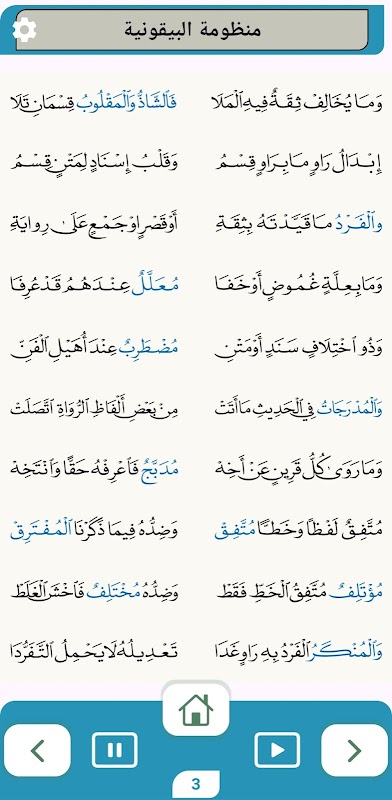 منظومة البيقونية
وَمَا يُخَالِفْ ثِقَةٌ فِيهِ الْمَلَا فَالشَّاذُّ وَالْمَقْلُوبُ قِسْمَانِ تَلَا
إِبْدَالُ رَاوٍ مَا بِرَاوٍ قِسْمُ وَقَلْبُ إِسْنَادٍ لِمَتْنٍ قِسْمُ
وَالْفَرْدُ مَا قَيَّدْتَهُ بِثِقَةِ أَوْ قَصْرٍ اوْ جَمْعٍ عَلَى رِوَايَةِ
وَمَا بِعِلَّةٍ غُمُوضٍ أَوْ خَفَا مُعَلَّلٌ عِنْدَهُمُ قَدْ عُرِفَا
وَذُو اخْتِلَافِ سَنَدٍ أَوْ مَتْنِ مُضْطَرِبٌ عِنْدَ أُهَيْلِ الْفَنِّ
وَالْمُدْرَجَاتُ فِي الْحَدِيثِ مَا أَتَتْ مِنْ بَعْضِ أَلْفَاظِ الرُّوَاةِ اتَّصَلَتْ
وَمَا رَوَى كُلُّ قَرِينٍ عَنْ أَخِهْ مُدَبَّجٌ فَاعْرِفْهُ حَقًّا وَانْتَخِهْ
مُتَّفِقٌ لَفْظًا وَخَطًّا مُتَّفِقْ وَضِدُّهُ فِيمَا ذَكَرْنَا الْمُفْتَرِقْ
مُؤْتَلِفٌ مُتَّفِقُ الْخَطِّ فَقَطْ وَضِدُّهُ مُخْتَلِفٌ فَاخْشَ الْغَلَطْ
وَالْمُنْكَرُ الْفَرْدُ بِهِ رَاوٍ غَدَا تَعْدِيلُهُ لَا يَحْمِلُ التَّفَرُّدَا
3